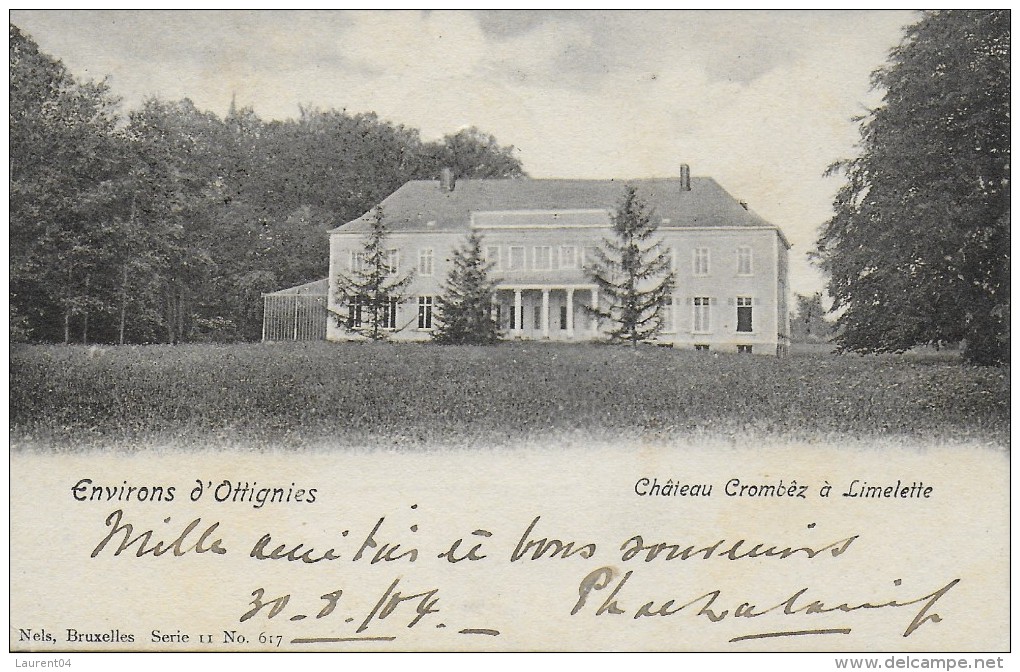 Environs d'Ottignies
Château Crombêz à Limelette
Mille amitiés et bons souvenirs
30-8-/04
Nels, Bruxelles Serie 11 No. 617
Laurent04
www.delcampe.net